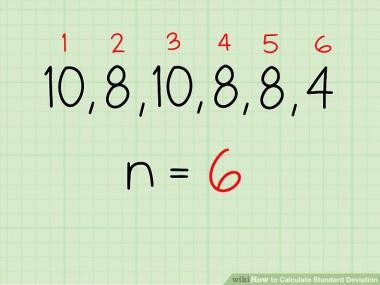 1 2 3 4 5 6
10, 8, 10, 8, 8, 4
n = 6
wikiHow to Calculate Standard Deviation